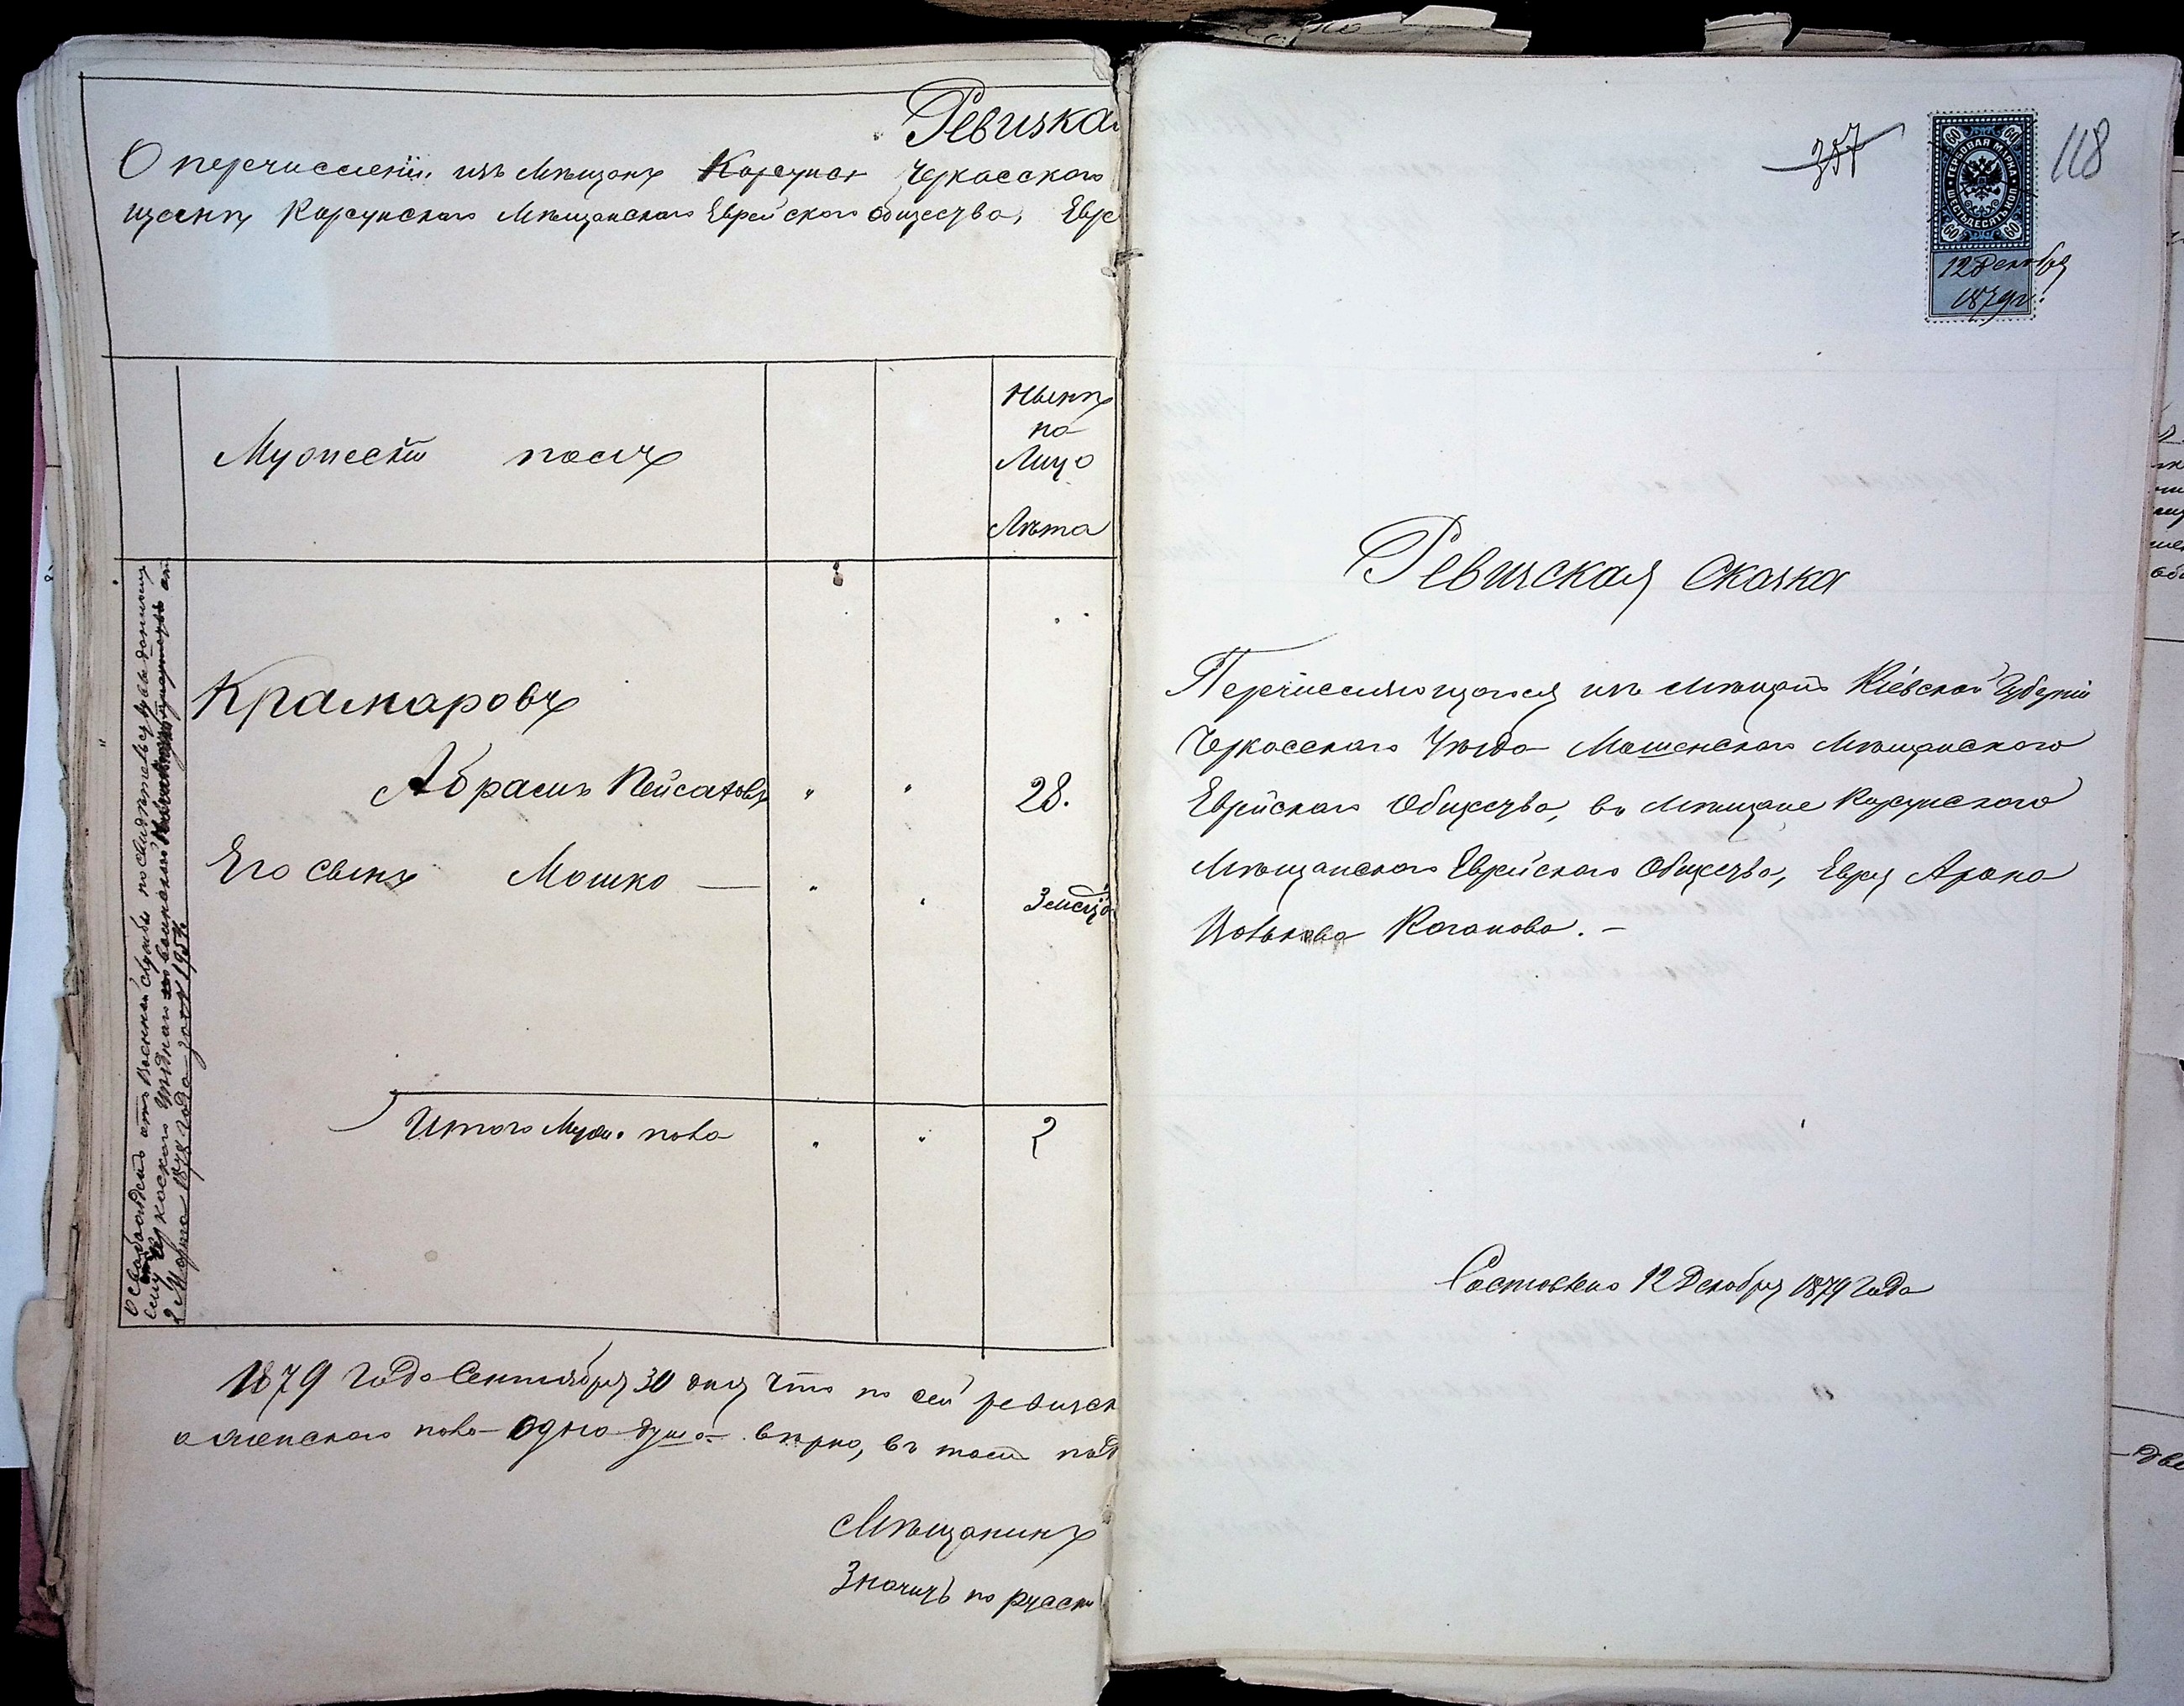 Ревизкая
О перечислении изъ мѣщанъ Корсунск Черкасского
щанъ Корсунскаго Мѣщанскаго Еврейского общества, Евре
Мужескій полъ
Нынѣ
на
Лицо
Лѣта
Освобожденъ отъ Военной службы по свидѣтельству выданному
ему Черкаского Уѣзднаго воинскаго присутствія от
2 Марта 1878 года за № 1957
Крамаровъ
Абрамъ Пейсаховъ " " 28.
Его сынъ Мошко — " " 3 мѣсяц
Итого Муж. пола " " 2
1879 года Сентября 30 дня Что по сей ревизск
а женскаго пола одна душа вѣрно, въ томъ под
Мѣщанинъ
Значитъ по русски
357
118
60 60
ГЕРБОВАЯ МАРКА
ШЕСТЬДЕСЯТЪ КОП.
60 60
12 Декабря
1879 г.
Ревизская сказка
Перечисляющагося изъ мѣщанъ Кіевской Губерніи
Черкасскаго Уѣзда Мошенскаго Мѣщанского
Еврейскаго Общества, въ мѣщане Корсунского
Мѣщанскаго Еврейскаго Общества, Еврея Арона
Коганова. —
Составлена 12 Декабря 1879 года